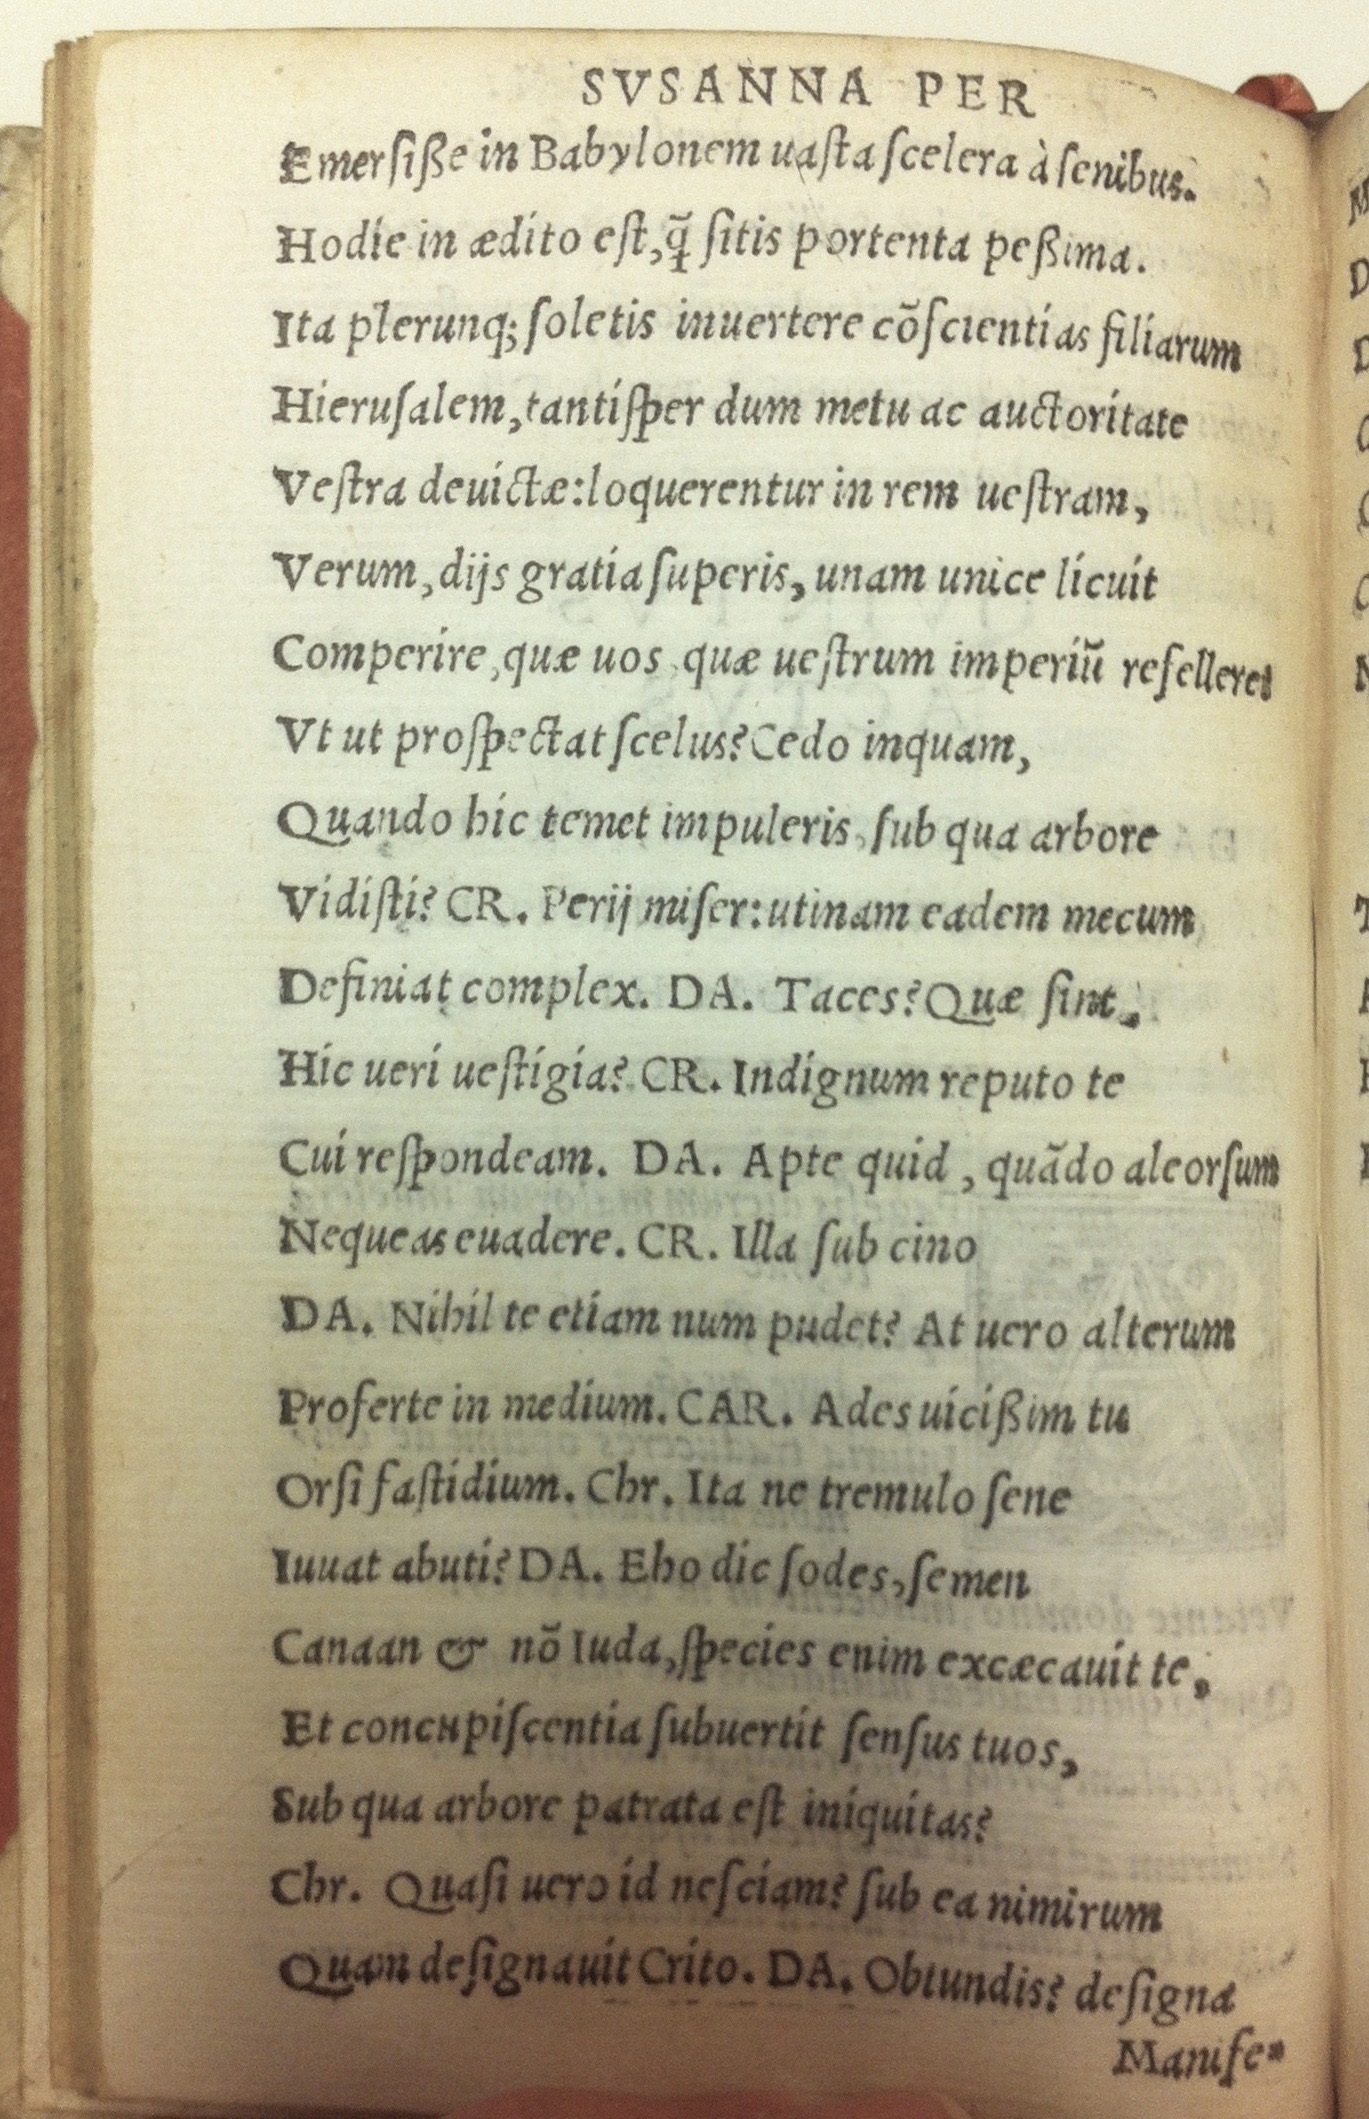 SVSANNA PER
Emerſiße in Babylonem uaſta ſcelera à ſenibus.
Hodie in ædito eſt, q̃ ſitis portenta peßima.
Ita plerunq; ſoletis inuertere cõſcientias filiarum
Hieruſalem, tantiſper dum metu ac auctoritate
Veſtra deuictæ: loquerentur in rem ueſtram,
Verum, dijs gratia ſuperis, unam unice licuit
Comperire, quæ uos quæ ueſtrum imperiũ refelleret
Vt ut proſpectat ſcelus? Cedo inquam,
Quando hic temet impuleris, ſub qua arbore
Vidiſti? CR. Perij miſer: utinam eadem mecum
Definiat complex. DA. Taces? Quæ ſint.
Hic ueri ueſtigia? CR. Indignum reputo te
Cui reſpondeam. DA. Apte quid, quãdo aleorſum
Nequeas euadere. CR. Illa ſub cino
DA. Nihil te etiam num pudet? At uero alterum
Proferte in medium. CAR. Ades uicißim tu
Orſi faſtidium. Chr. Ita ne tremulo ſene
Iuuat abuti? DA. Eho dic ſodes, ſemen
Canaan & nõ Iuda, ſpecies enim excæcauit te,
Et concupiſcentia ſubuertit ſenſus tuos,
Sub qua arbore patrata eſt iniquitas?
Chr. Quaſi uero id neſciam? ſub ea nimirum
Quam deſignauit Crito. DA. Obtundis? deſigna
Manife-